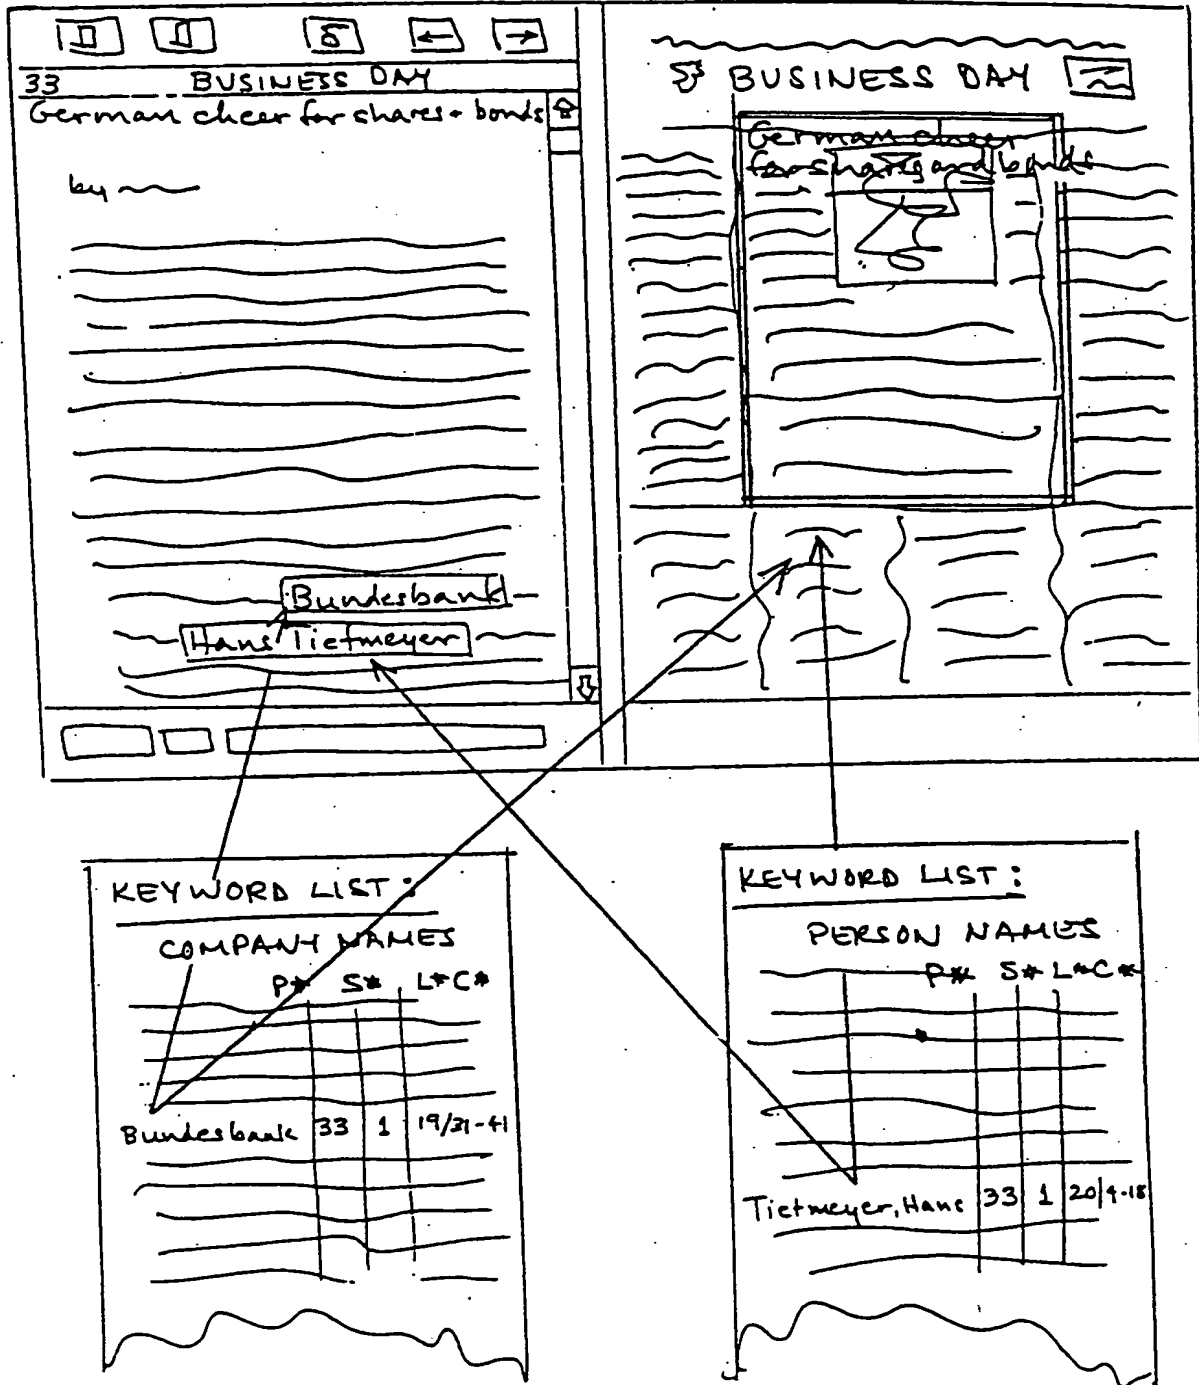 33 BUSINESS DAY
German cheer for shares + bonds
by
Bundesbank
Hans Tietmeyer
BUSINESS DAY
German cheer
for shares and bonds
KEYWORD LIST:
COMPANY NAMES
P* S* L*C*
Bundesbank 33 1 19/31-41
KEYWORD LIST:
PERSON NAMES
P* S* L*C*
Tietmeyer, Hans 33 1 20/4-18